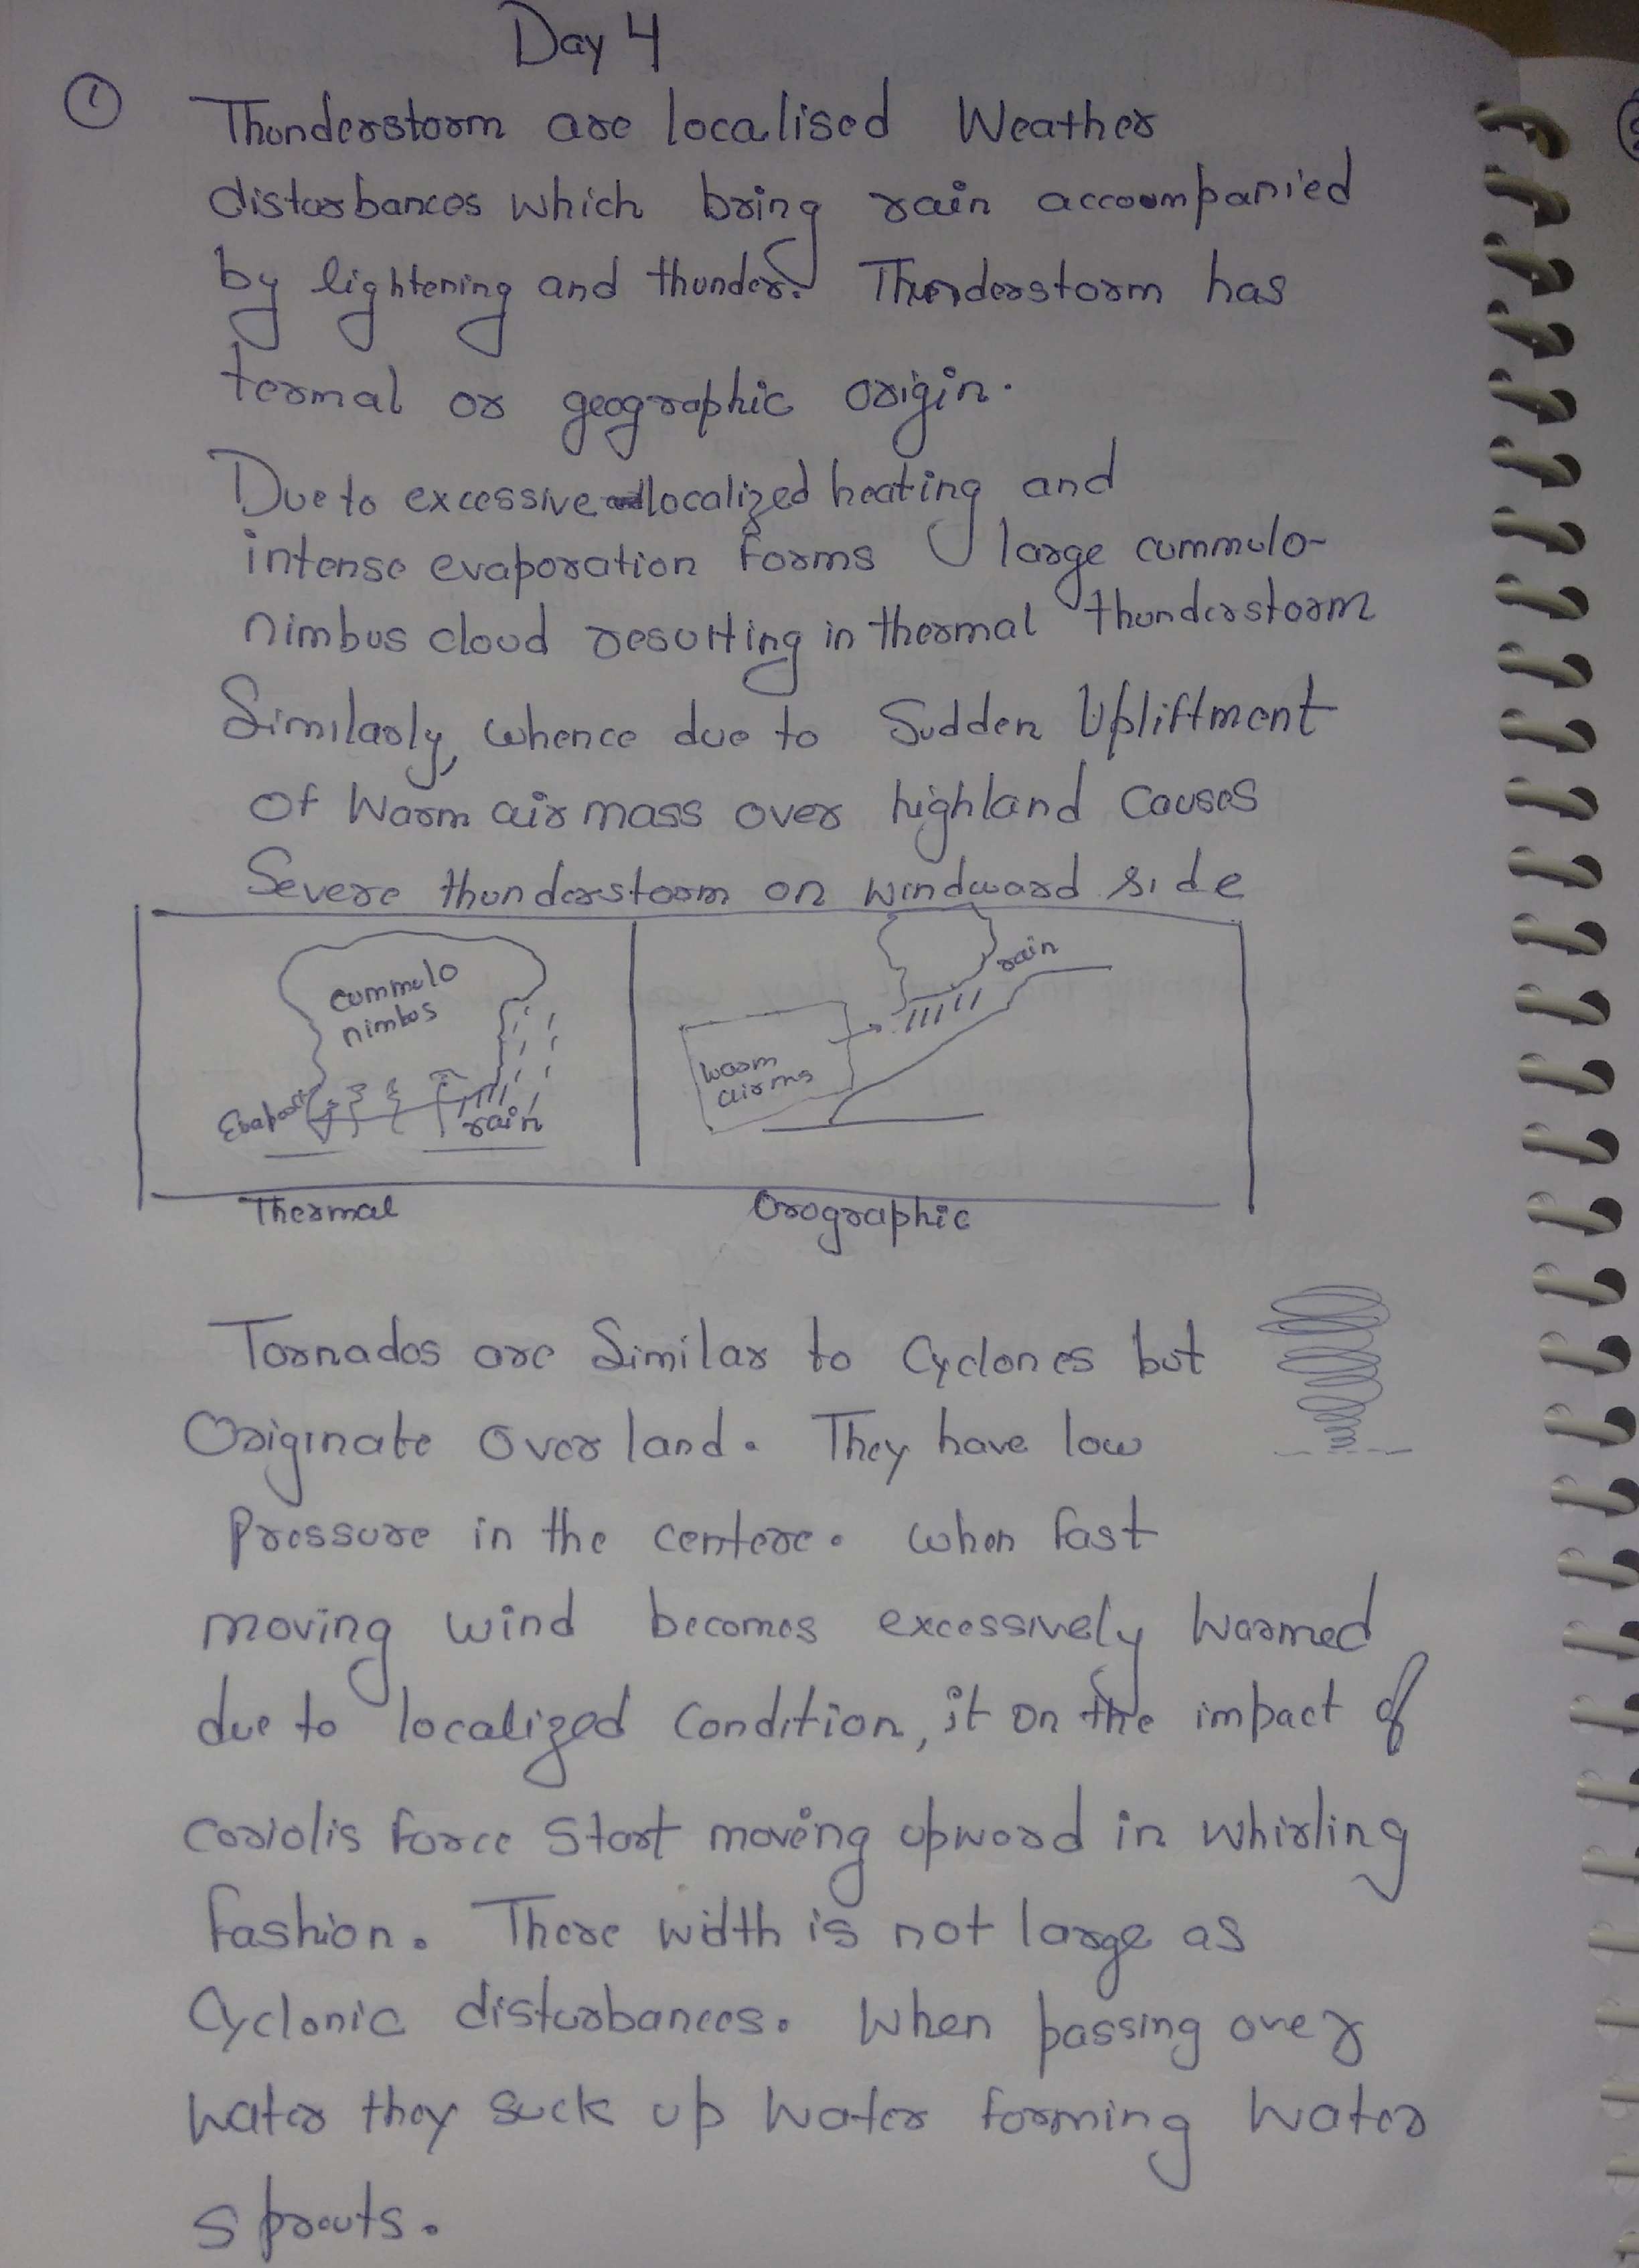 Day 4
① Thunderstorm are localised Weather
disturbances which bring rain accoumpanied
by lightening and thunder. Thunderstorm has
termal or geographic origin.
Due to excessive localized heating and
intense evaporation forms large cummulo-
nimbus cloud resulting in thermal thunderstorm
Similarly, whence due to Sudden Upliftment
Of Warm air mass over highland causes
Severe thunderstorm on windward side
cummulo
nimbus
rain
rain
warm
airms
Thermal
Orographic
Tornados are Similar to Cyclones but
Originate Over land. They have low
Pressure in the centere. When fast
moving wind becomes excessively Warmed
due to localized condition, it on the impact of
coriolis force Start moving upward in whirling
fashion. There width is not large as
Cyclonic disturbances. When passing over
water they suck up water forming water
sprouts.